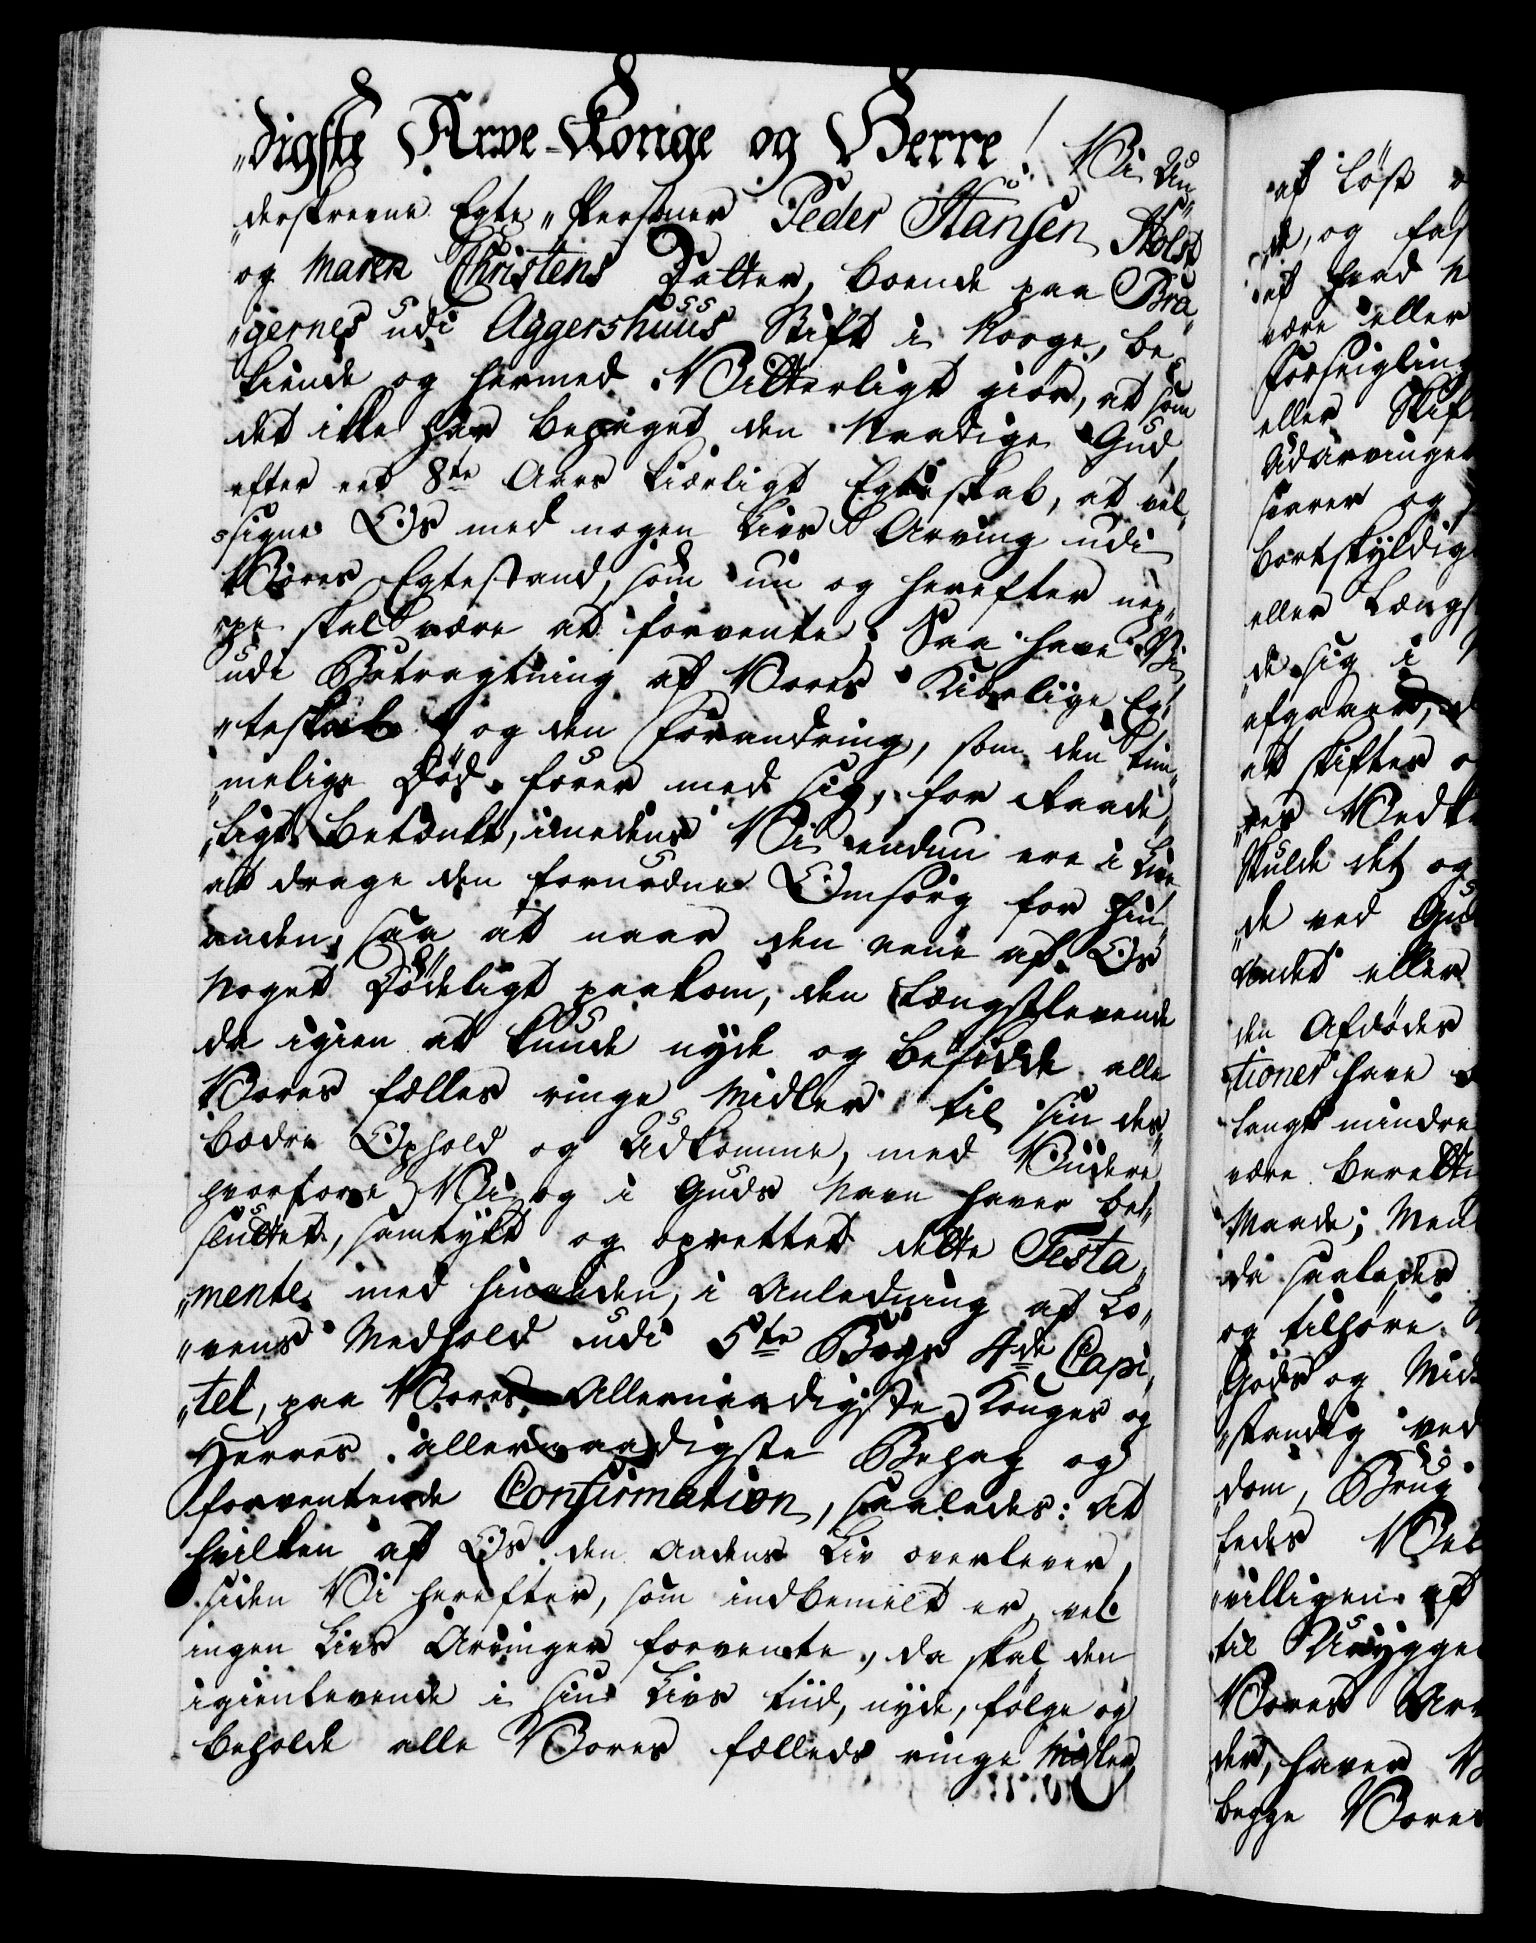 „digste Arve-Konge og Herre! Vi Un„
„derskrevne Egte„Personer Peder Hansen Holst
og Maren Christens Datter, boende paa Bra„
„gernes udi Aggershuus Stift i Norge, be„
kiende og hermed Vitterligt giør, at som
det ikke har behaget den Naadige Gud,
efter eet 8te Aars kierligt Egteskab, at vel„
„signe Os med nogen Livs Arving udi
Vores Egtestand, som nu og herefter nep„
„pe skal være at forvente; Saa have Vi
udi Betragtning af Vores Kierlige Eg„
„teskab og den Forandring, som den tim„
„melige Død fører med sig, for Raade„
„ligt betænkt, imedens Vi endnu ere i Live
at drage den fornødne Omsorg for hin„
anden, saa at naar den eene af Os
Noget Dødeligt paakom, den Længstlevende
da igien at kunde nyde og besidde alle
Vores fælles ringe Midler til sin des„
bedre Ophold og Udkomme, med Viidere,
hvorfore Vi og i Guds Navn haver be„
sluttet, samtykt og oprettet dette Testa„
„mente med hinanden, i Anledning af Lo„
„vens Medhold udi 5te Bogs 4de Capi„
„tel, paa Vores Allernaadigste Konges og
Herres allernaadigste Behag og
forventende Confirmation, saaledes: At
hvilken af Os den Andens Liv overlever,
siden Vi herefter, som indbemelt er, vel
ingen Livs Arvinger forvente, da skal den
igienlevende i sin Livs tiid, nyde, følge og
beholde alle Vores fælleds ringe Midler
af Løst
og fas
af hvad
være eller
Forseigling
eller Skift
Udarvinger
svarer og
bortskyldig
eller Længs
de sig i
afgaaer,
at skifter
Vedk
skulde det og
de ved Gud
Andet eller
den Afdødes
tioner have
langt mindre
være beretti
Maade; Men
da saaledes
og tilhøre
Gods og Mid
standig ved
dom, Brug
ledes Vel
villigen at
til Urygge
Vores Arv
der, haver
begge Vores